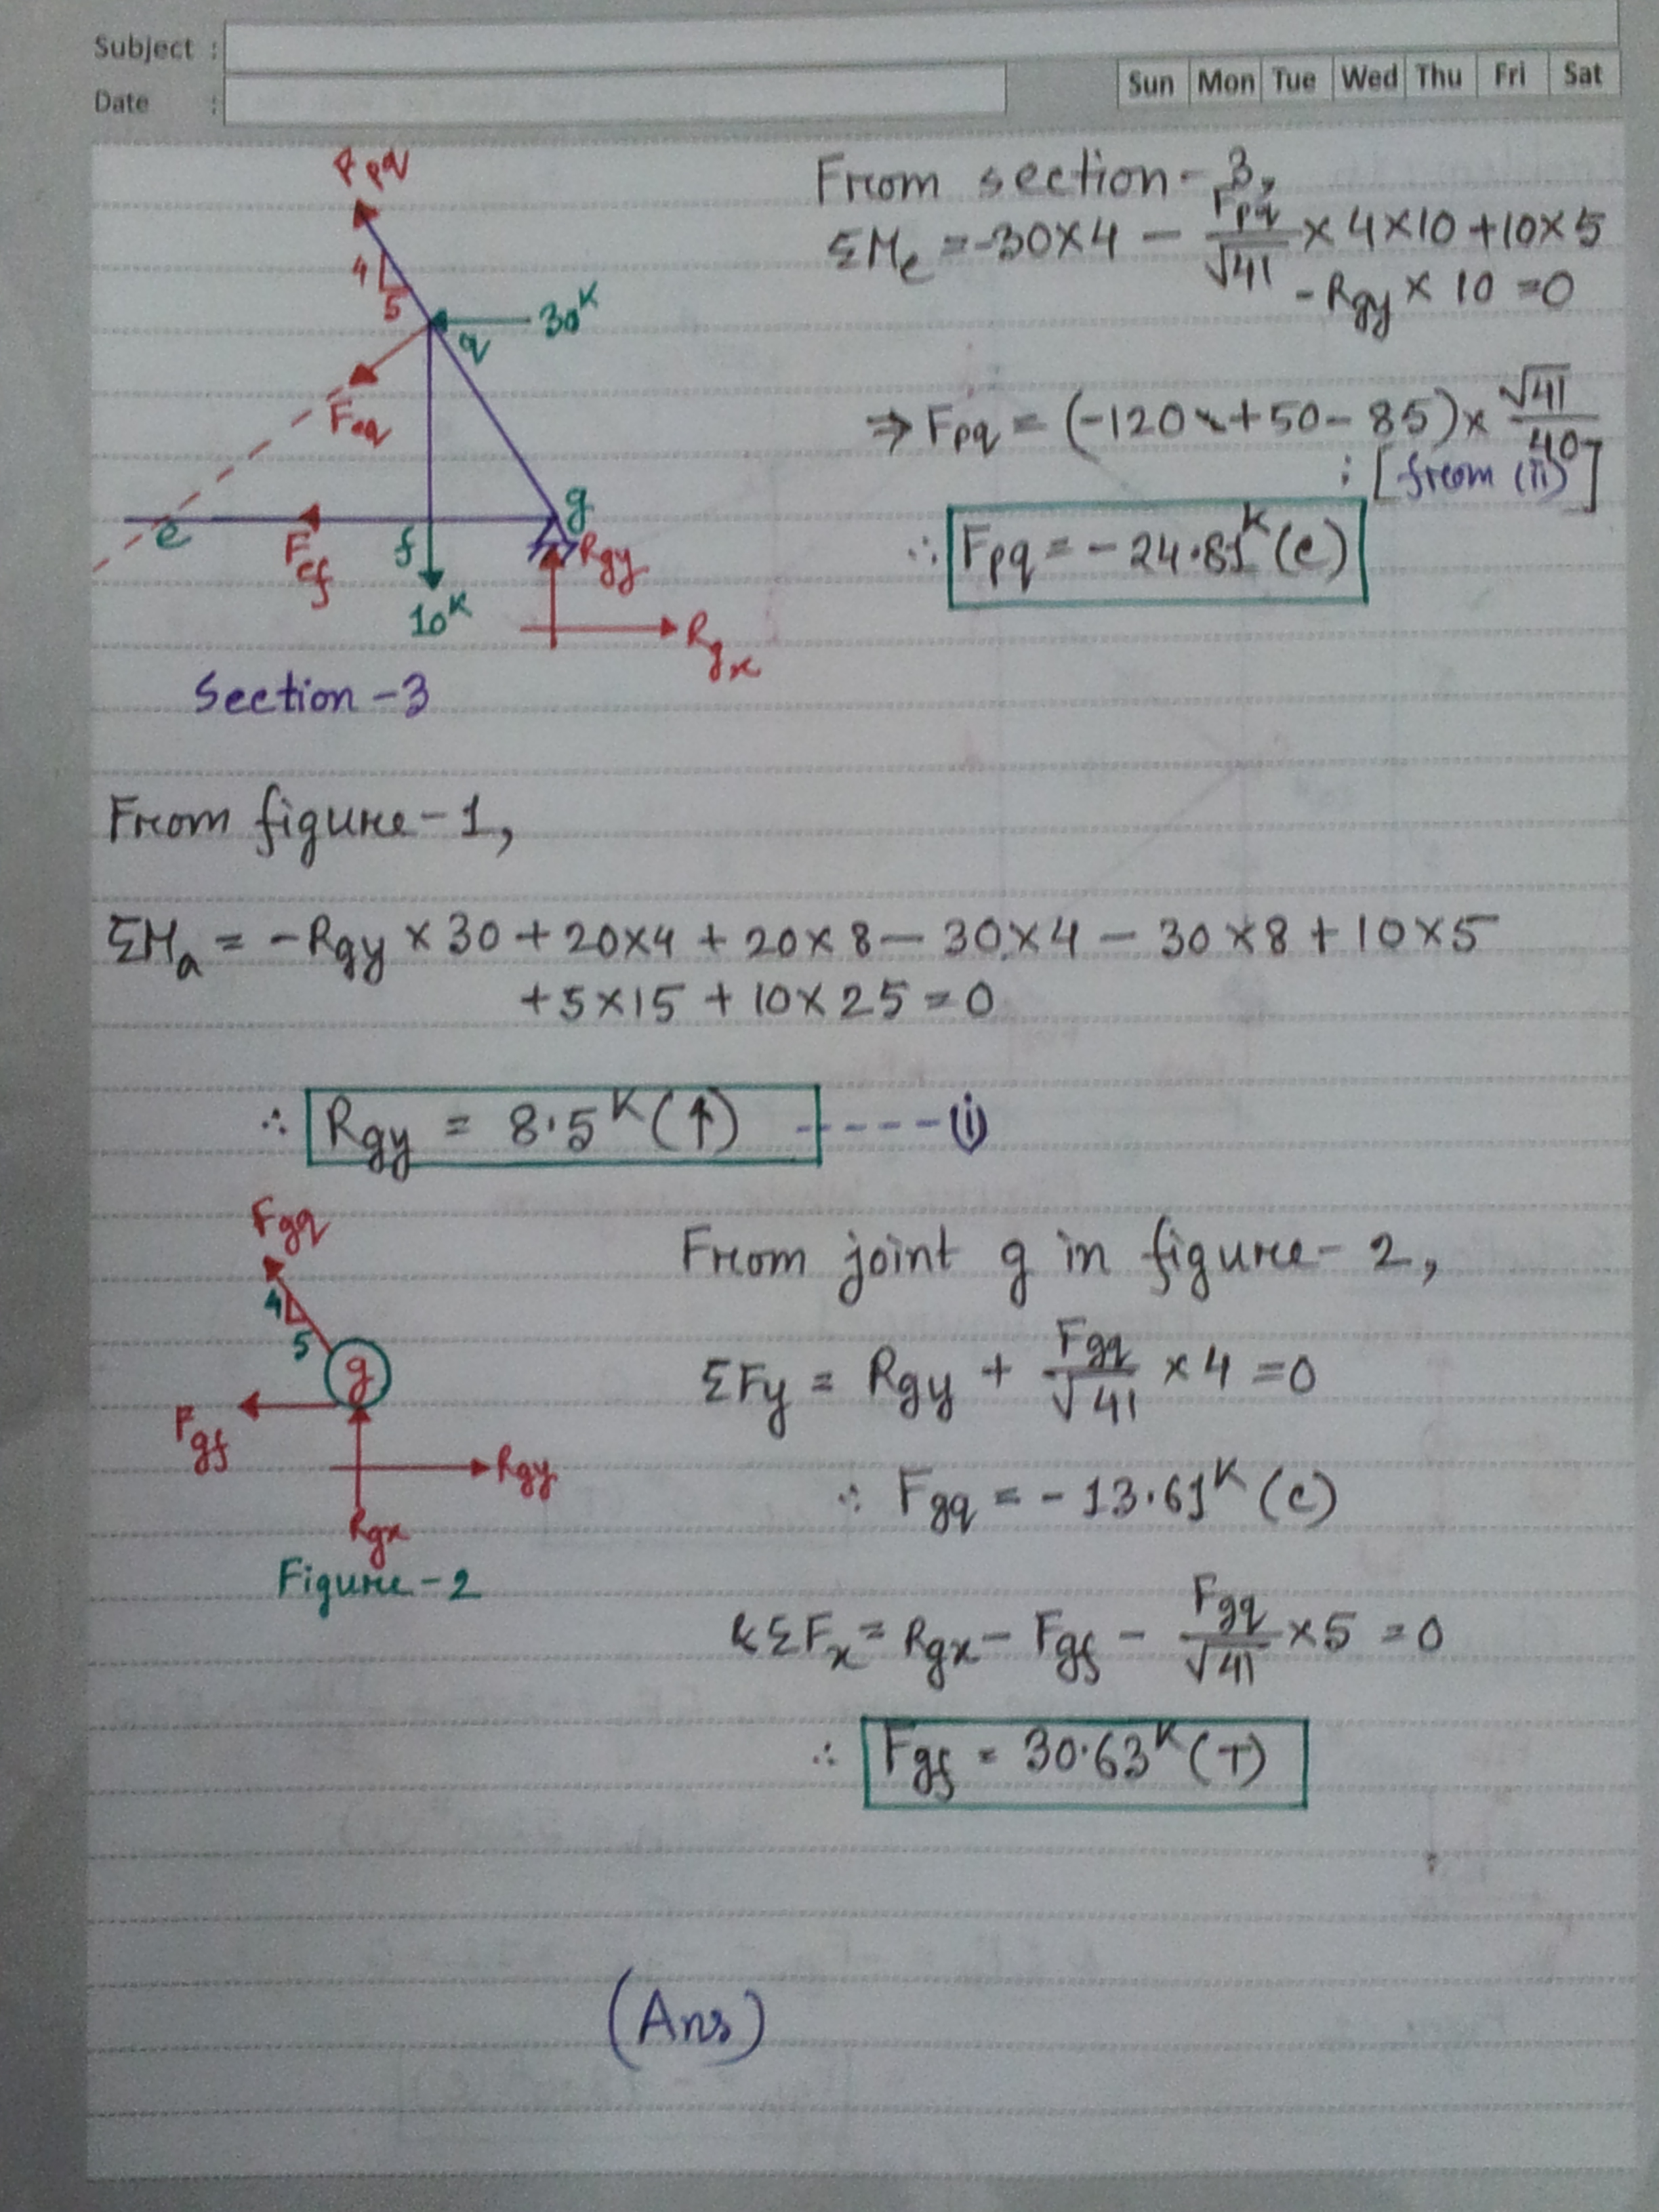 Subject :
Date :
Sun Mon Tue Wed Thu Fri Sat
Fpq
4
5
30K
q
Feq
e
Fef
f
g
Rgy
10K
Rgx
Section-3
From section-3,
ΣMe = -30×4 - Fpq/√41 × 4×10 + 10×5
- Rgy × 10 = 0
⇒ Fpq = (-120 + 50 - 85) × √41/40
; [from (ii)]
∴ Fpq = -24.81K (C)
From figure-1,
ΣMa = -Rgy × 30 + 20×4 + 20×8 - 30×4 - 30×8 + 10×5
+ 5×15 + 10×25 = 0
∴ Rgy = 8.5K (↑) -----(i)
Fgq
4
5
g
Fgf
Rgy
Rgx
Figure-2
From joint g in figure-2,
ΣFy = Rgy + Fgq/√41 × 4 = 0
∴ Fgq = -13.61K (C)
& ΣFx = Rgx - Fgf - Fgq/√41 × 5 = 0
∴ Fgf = 30.63K (T)
(Ans)